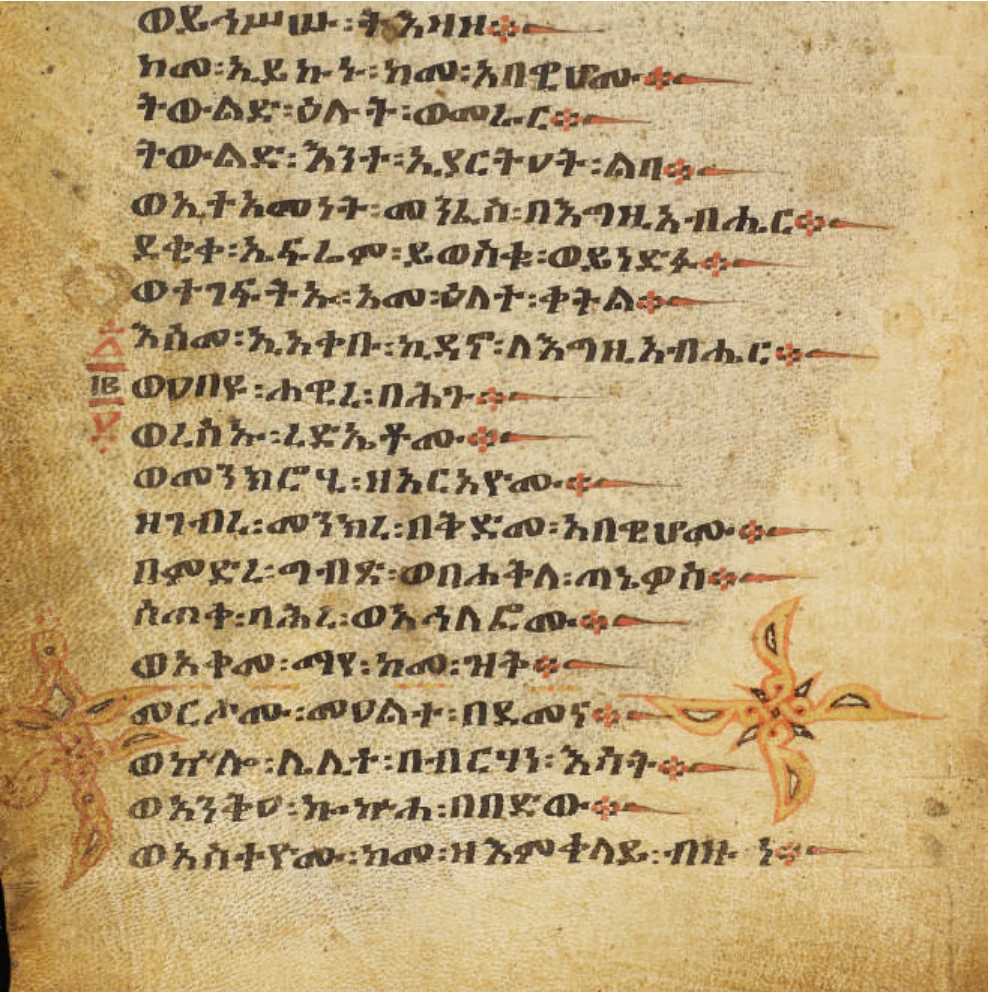 ወይኅሥሡ፡ትእዛዞ፨
ከመ፡ኢይኩኑ፡ከመ፡አበዊሆሙ፨
ትውልድ፡ዕሉት፡ወመራር፨
ትውልድ፡እንተ፡ኢያርትዐት፡ልባ፨
ወኢተአመነት፡መንፈስ፡በእግዚአብሔር፨
ደቂቀ፡ኤፍሬም፡ይወስቁ፡ወይነድፉ፨
ወተገፍትኡ፡አመ፡ዕለተ፡ቀትል፨
እስመ፡ኢአቀቡ፡ኪዳኖ፡ለእግዚአብሔር፨
፲፪
ወዐበዩ፡ሐዊረ፡በሕጉ፨
ወረስኡ፡ረድኤቶሙ፨
ወመንክሮሂ፡ዘአርአዮሙ፨
ዘገብረ፡መንክረ፡በቅድመ፡አበዊሆሙ፨
በምድረ፡ግብጽ፡ወበሐቅለ፡ጣኔዎስ፨
ሰጠቀ፡ባሕረ፡ወአኅለፎሙ፨
ወአቀመ፡ማየ፡ከመ፡ዝቅ፨
መርሖሙ፡መዐልተ፡በደመና፨
ወኵሎ፡ሌሊተ፡በብርሃነ፡እሳት፨
ወአንቅዐ፡ኰኵሐ፡በበድው፨
ወአስተዮሙ፡ከመ፡ዘእምቀላይ፡ብዙኅ፨